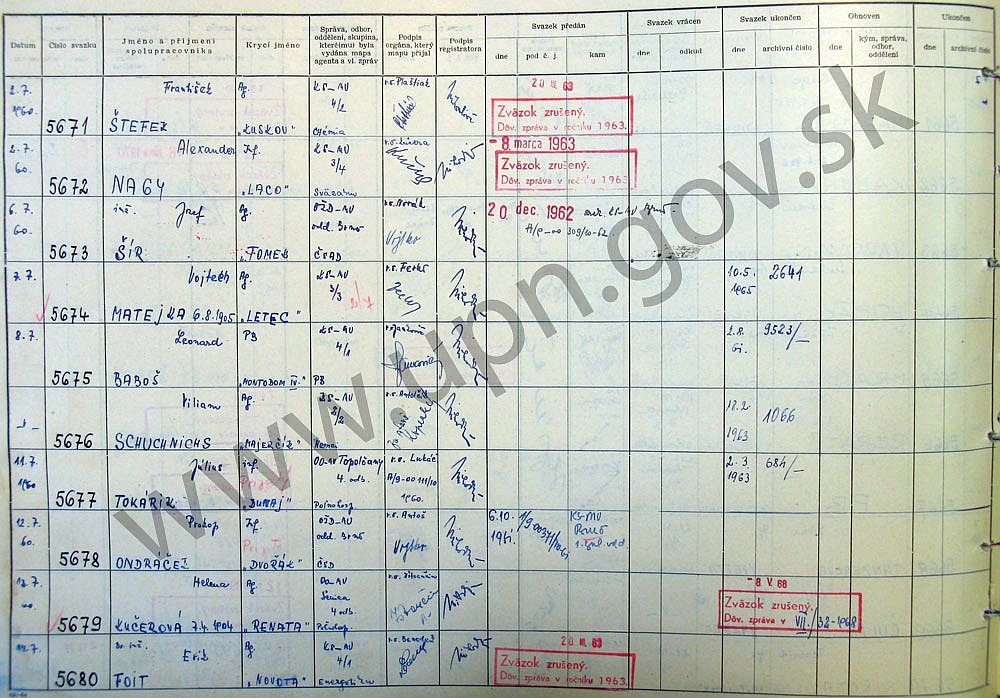 Datum
Číslo svazku
Jméno a přijmení spolupracovníka
Krycí jméno
Správa, odbor, oddělení, skupina, kterému(i) byla vydána mapa agenta a vl. zpráv
Podpis orgána, který mapu přijal
Podpis registratora
Svazek předán
dne
pod č. j.
kam
Svazek vrácen
dne
odkul
Svazek ukončen
dne
archivní číslo
Obnoven
dne
kým, správa, odbor, oddělení
Ukončen
dne
archivní číslo
2.7. 1960.
5671
František
ŠTEFEK
Ag.
„KUSKOV“
KS-AV
4/2
Chémia
20 III. 63
Zväzok zrušený.
Dôv. zpráva v ročníku 1963.
2.7. 60.
5672
Alexander
NAGY
Inf.
„LACO“
KS-AV
3/4
- 8. marca 1963
Zväzok zrušený.
Dôv. zpráva v ročníku 1963.
6.7. 60.
5673
inž. Jozef
ŠÍR
Ag.
„TOMEK“
OŽD-AV
odd. Brno
ČSAD
r.s. Novák
20 dec. 1962
A/9-00 309/10-62.
7.7.
5674
Vojtech
MATEJKA 6.8.1905
Ag.
„LETEC“
KS-AV
3/3
10.5. 1965
2641
8.7.
5675
Leonard
BABOŠ
PB
„MONTODOM IV.“
KS-AV
4/1
PB
2.8. 61.
9523/-
- " -
5676
Viliam
SCHUCHNICHS
Ag.
„MAJERČÍK“
KS-AV
2/2
18.2. 1963
1066
11.7. 1960
5677
Július
TOKARIK
inf.
„DUNAJ“
OO-AV Topolčany
4. odb.
r.s. Lukáč
A/9-00 111/10
1960.
2.3. 1963
684/-
12.7. 60.
5678
Prokop
ONDRÁČEK
Inf.
„DVOŘÁK“
OŽD-AV
odd. Brno
ČSD
r.s. Antoš
6.10. 1961.
KS-MV
Brno
12.7. 60.
5679
Helena
KUČEROVÁ 7.4.1904
Ag.
„RENATA“
OO-AV
Senica
4 odb.
- 8. V. 68
Zväzok zrušený.
Dôv. zpráva v VII./32-1968
5680
Dr. inž. Erik
FOIT
Ag.
„NOVOTA“
KS-AV
4/1
Energetika
20 III. 63
Zväzok zrušený.
Dôv. zpráva v ročníku 1963.
www.upn.gov.sk